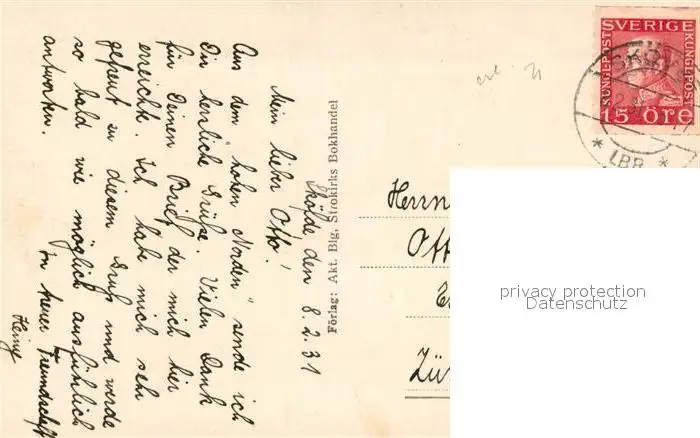 Skövde den 8.2.31
Mein lieber Otto!
Aus dem „hohen Norden" sende ich
Dir herzliche Grüße. Vielen Dank
für Deinen Brief der mich hier
erreicht. Ich habe mich sehr
gefreut zu diesem Gruß und werde
so bald wie möglich ausführlich
antworten.
In treuer Freundschaft
Heinz
Förlag: Akt. Blg, Strokirks Bokhandel
SVERIGE
KUNGL·POST
KUNGL·POST
15 ÖRE
SKÖV
* LBR *
Herrn
Ott
Zür
privacy protection
Datenschutz